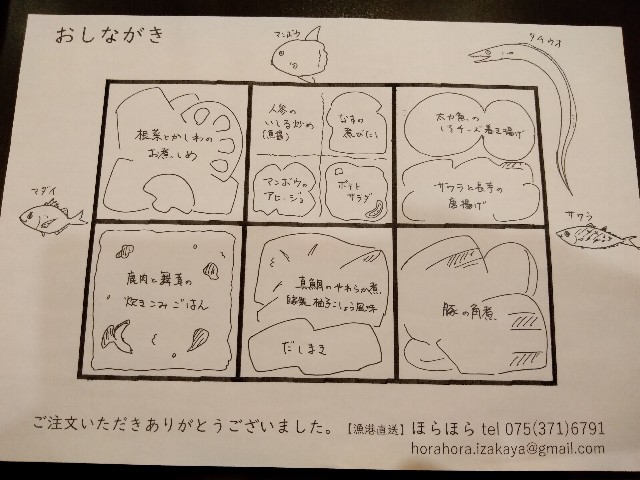 おしながき
マンボウ
タチウオ
マダイ
サワラ
根菜とかしわの
お煮しめ
人参の
いしる炒め
(魚醤)
なすの
煮びたし
マンボウの
アヒージョ
ポテト
サラダ
太刀魚の
しそチーズ巻き揚げ
サワラと長芋の
唐揚げ
鹿肉と舞茸の
炊きこみごはん
真鯛のやわらか煮
柚子こしょう風味
だしまき
豚の角煮
ご注文いただきありがとうございました。【漁港直送】ほらほら tel 075(371)6791
horahora.izakaya@gmail.com